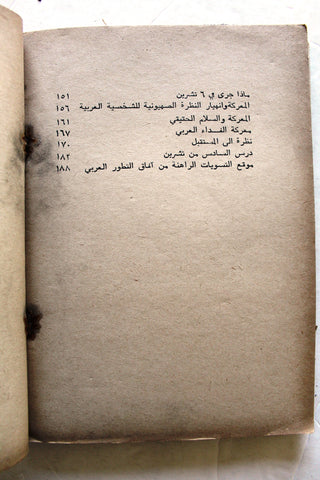 ماذا جرى في ٦ تشرين ١٥١
المعركة وانهيار النظرة الصهيونية للشخصية العربية ١٥٦
المعركة والسلام الحقيقي ١٦١
معركة الفداء العربي ١٦٧
نظرة الى المستقبل ١٧٠
درس السادس من تشرين ١٨٢
موقع التسويات الراهنة من آفاق التطور العربي ١٨٨